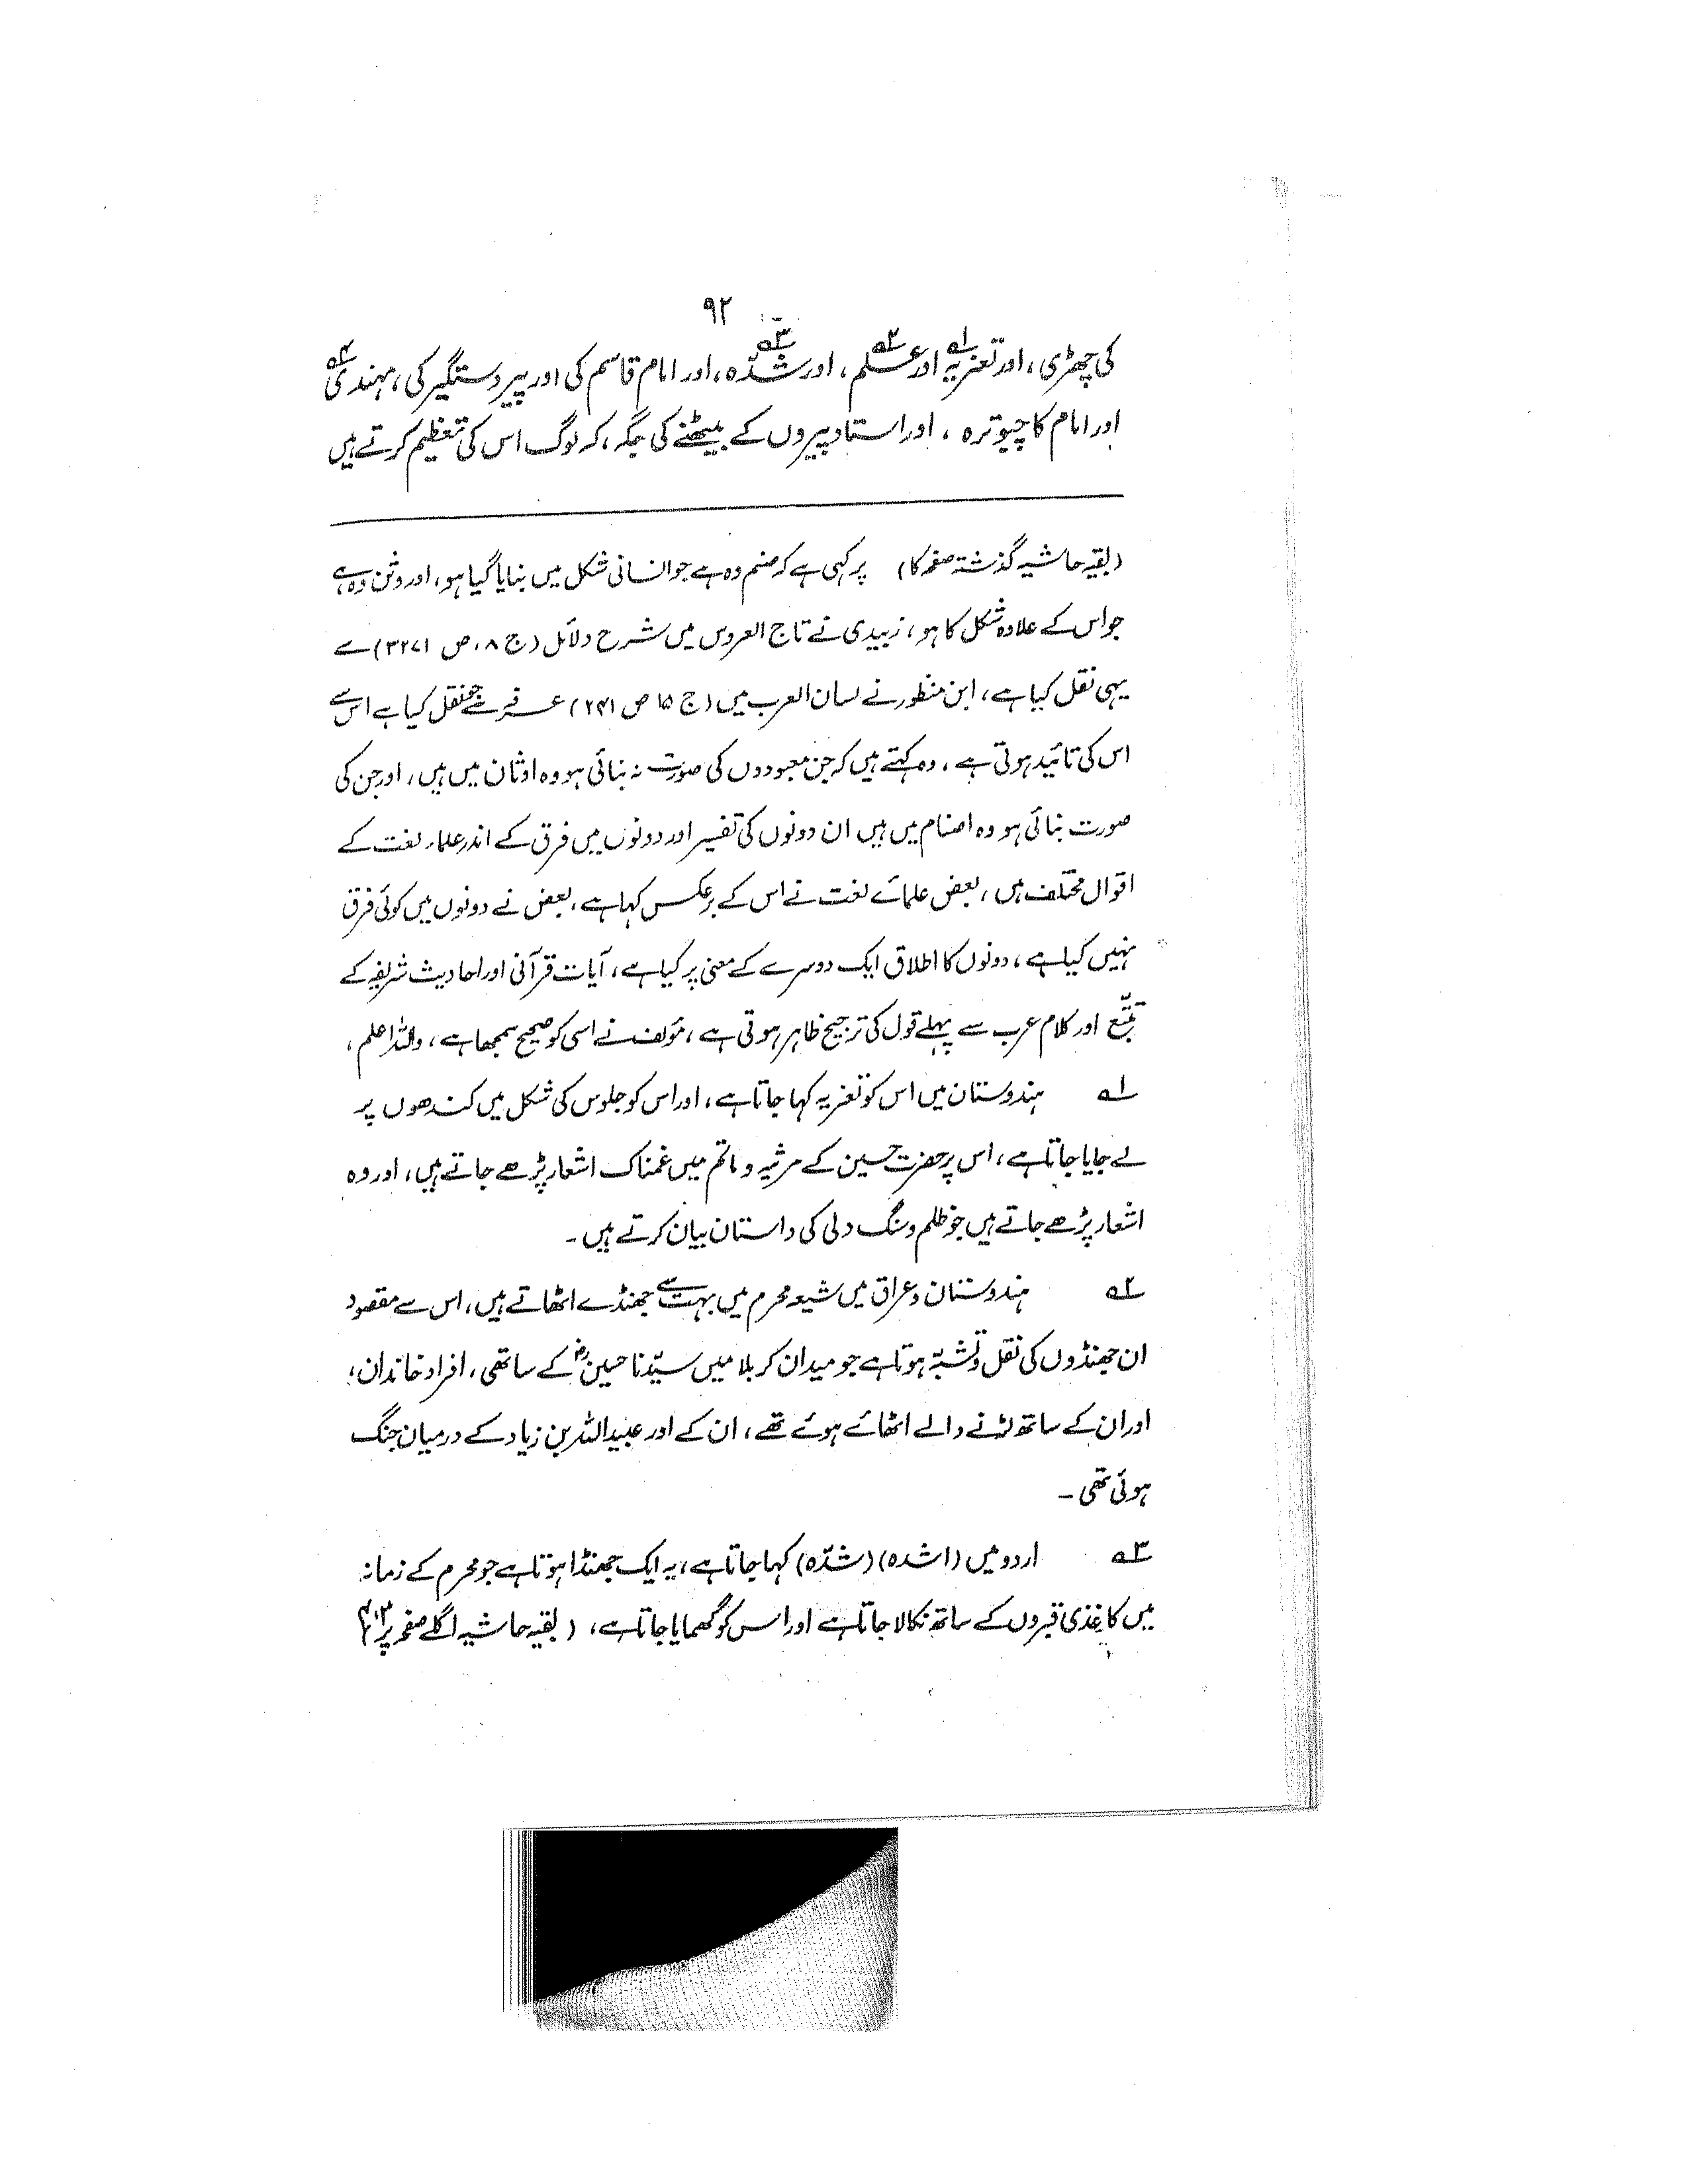 ۹۲
کی چھڑی، اور تعزیہ۱؎ اور عَلم۲؎، اور شدّہ۳؎، اور امام قاسم کی اور پیر دستگیر کی، مہندی۴؎
اور امام کا چبوترہ، اور استاد پیروں کے بیٹھنے کی جگہ، کہ لوگ اس کی تعظیم کرتے ہیں
(بقیہ حاشیہ گذشتہ صفحہ کا) پر کہی ہے کہ صنم وہ ہے جو انسانی شکل میں بنایا گیا ہو، اور وثن وہ ہے
جو اس کے علاوہ شکل کا ہو، زبیدی نے تاج العروس میں شرح دلائل (ج ۸، ص ۳۲۷۱) سے
یہی نقل کیا ہے، ابن منظور نے لسان العرب میں (ج ۱۵ ص ۲۴۱) عرفہ سے جو نقل کیا ہے اس سے
اس کی تائید ہوتی ہے، وہ کہتے ہیں کہ جن معبودوں کی صورت نہ بنائی ہو وہ اوثان میں ہیں، اور جن کی
صورت بنائی ہو وہ اصنام میں ہیں ان دونوں کی تفسیر اور دونوں میں فرق کے اندر علماء لغت کے
اقوال مختلف ہیں، بعض علمائے لغت نے اس کے برعکس کہا ہے، بعض نے دونوں میں کوئی فرق
نہیں کیا ہے، دونوں کا اطلاق ایک دوسرے کے معنی پر کیا ہے، آیات قرآنی اور احادیث شریفہ کے
تتبّع اور کلام عرب سے پہلے قول کی ترجیح ظاہر ہوتی ہے، مؤلف نے اسی کو صحیح سمجھا ہے، واللہ اعلم،
۱؎ ہندوستان میں اس کو تعزیہ کہا جاتا ہے، اور اس کو جلوس کی شکل میں کندھوں پر
لے جایا جاتا ہے، اس پر حضرت حسین کے مرثیہ و ماتم میں غمناک اشعار پڑھے جاتے ہیں، اور وہ
اشعار پڑھے جاتے ہیں جو ظلم و سنگ دلی کی داستان بیان کرتے ہیں۔
۲؎ ہندوستان و عراق میں شیعہ محرم میں بہت سے جھنڈے اٹھاتے ہیں، اس سے مقصود
ان جھنڈوں کی نقل و تشبّہ ہوتا ہے جو میدان کربلا میں سیّدنا حسینؓ کے ساتھی، افراد خاندان،
اور ان کے ساتھ لڑنے والے اٹھائے ہوئے تھے، ان کے اور عبیداللہ بن زیاد کے درمیان جنگ
ہوئی تھی۔
۳؎ اردو میں (اشدہ) (شدّہ) کہا جاتا ہے، یہ ایک جھنڈا ہوتا ہے جو محرم کے زمانہ
میں کاغذی قبروں کے ساتھ نکالا جاتا ہے اور اس کو گھمایا جاتا ہے، (بقیہ حاشیہ اگلے صفحہ پر